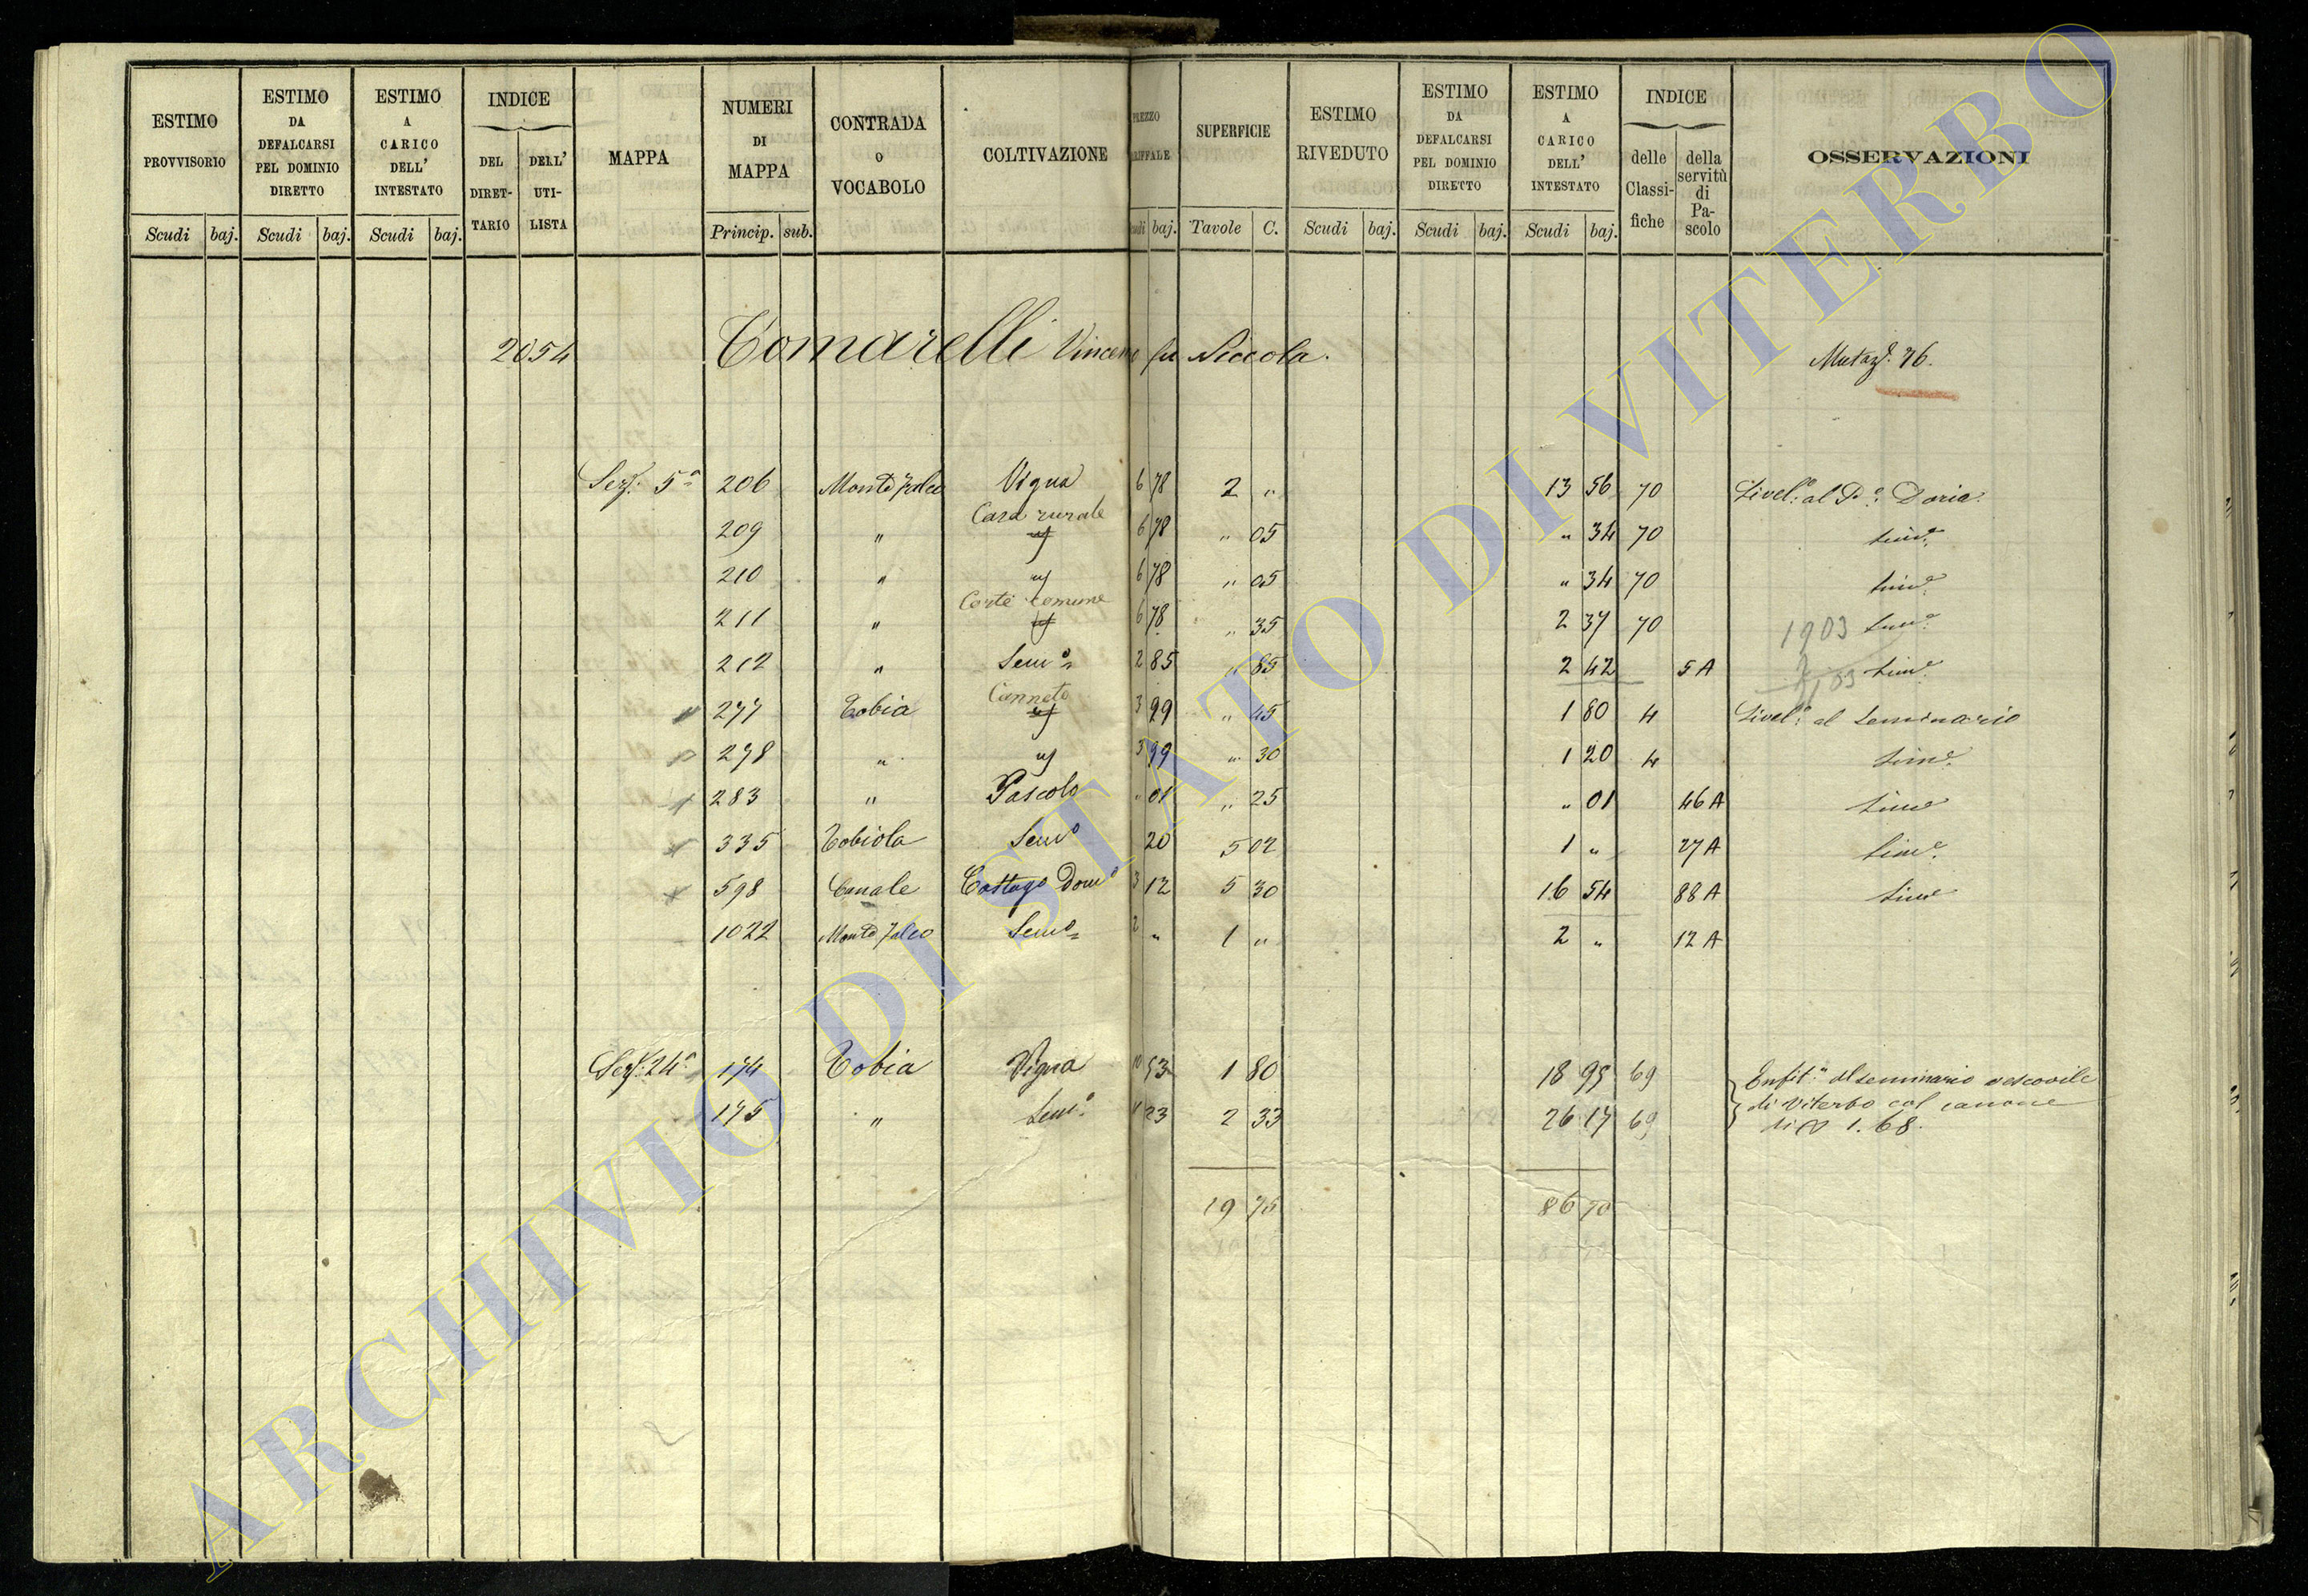 ESTIMO PROVVISORIO ESTIMO DA DEFALCARSI PEL DOMINIO DIRETTO ESTIMO A CARICO DELL' INTESTATO INDICE DEL DIRET-TARIO DELL' UTI-LISTA MAPPA NUMERI DI MAPPA CONTRADA O VOCABOLO COLTIVAZIONE PREZZO SUPERFICIE ESTIMO RIVEDUTO ESTIMO DA DEFALCARSI PEL DOMINIO DIRETTO ESTIMO A CARICO DELL' INTESTATO INDICE delle Classi-fiche della servitù di Pa-scolo OSSERVAZIONI
Scudi baj. Scudi baj. Scudi baj. Princip. sub. baj. Tavole C. Scudi baj. Scudi baj. Scudi baj.
2054 Comarelli Vincenzo fu Niccola. Mutaz.e 76.
Sez. 5a 206 Monte Jalco Vigna 6 78 2 " 13 56 70 Livel.o al P.e Doria.
209 " Casa rurale 6 78 " 05 " 34 70 sim.e
210 " " 6 78 " 05 " 34 70 sim.e
211 " Corte comune 6 78 " 35 2 37 70 1903 sim.e
212 " Sem.o 2 85 " 85 2 42 5 A sim.e
277 Tobia Canneto 3 99 " 45 1 80 4 Livel.o al Seminario
278 " " 3 99 " 30 1 20 4 sim.e
283 " Pascolo " 01 " 25 " 01 46 A sim.e
335 Tobiola Sem.o 20 5 02 1 " 27 A sim.e
598 Canale Castag.o Dom.o 3 12 5 30 16 54 88 A sim.e
1022 Monte Jalco Sem.o 2 " 1 " 2 " 12 A
Sez. 24a 174 Tobia Vigna 10 53 1 80 18 95 69 Enfit.a al seminario vescovile
di Viterbo col canone
175 " Sem.o 23 2 33 26 17 69 di 1.68.
19 75 86 70
ARCHIVIO DI STATO DI VITERBO